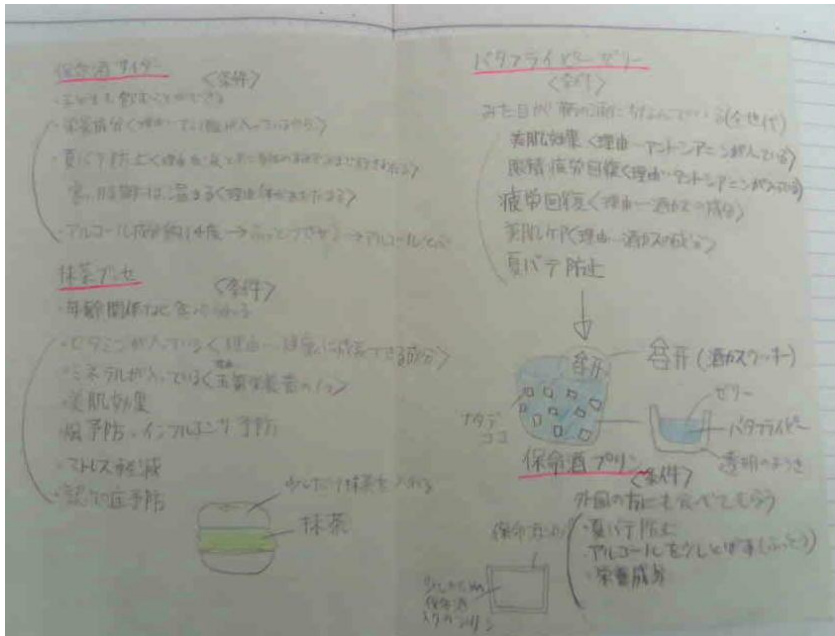 保命酒サイダー
<条件>
・子どもも飲むことができる
・栄養成分<理由
・夏バテ防止<理由
<理由 体があたたまる>
・アルコール成分約14度→ふっとうさせる→アルコール
抹茶ブッセ
<条件>
・年齢関係なく食べられる
・ビタミンが入っている<理由ー健康に成長できる成分>
・ミネラルが入っている<理由 五大栄養素の1つ>
・美肌効果
・風予防・インフルエンザ予防
・ストレス軽減
・認知症予防
少しだけ抹茶を入れる
抹茶
バタフライピーゼリー
<条件>
みた目が鞆の浦にちなんでいる(全世代)
美肌効果<理由ーアントシアニンが入っている>
眼精疲労回復<理由ーアントシアニンが入っている>
疲労回復<理由ー酒カスの成分>
美肌ケア<理由ー酒カスの成分>
夏バテ防止
(酒カスクッキー)
ナタデ
ココ
ゼリー
バタフライピー
透明のようき
保命酒プリン
<条件>
外国の方にも食べてもらう
・夏バテ防止
アルコールを少しとばす(ふっとう)
・栄養成分
保命酒